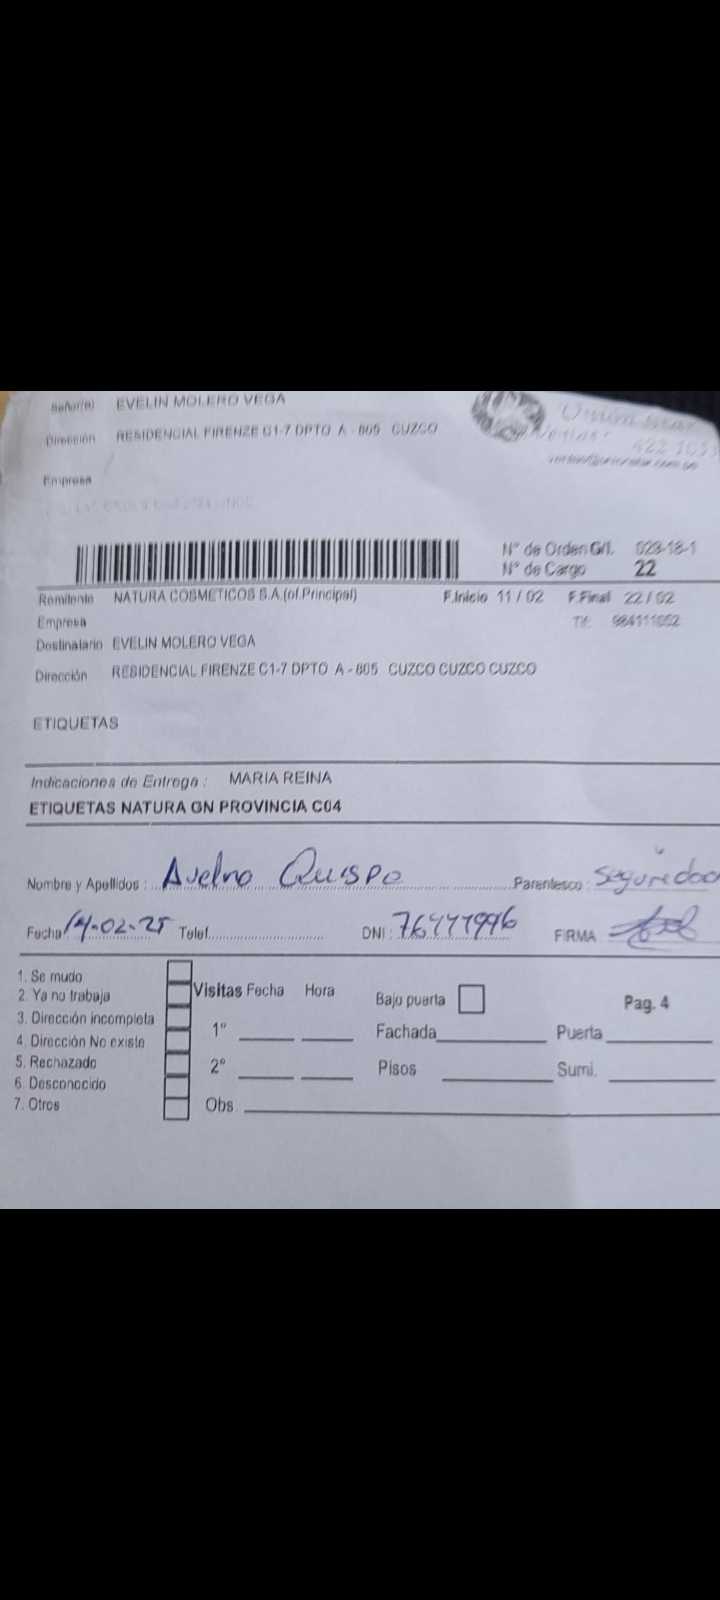 Señor(a) EVELIN MOLERO VEGA
Dirección RESIDENCIAL FIRENZE C1-7 DPTO A - 805 CUZCO
Empresa
Unión Star
Ventas:
N° de Orden G/I. 028-18-1
N° de Cargo 22
Remitente NATURA COSMETICOS S.A.(of.Principal) F.Inicio 11 / 02 F.Final 22 / 02
Empresa Tlf: 984111052
Destinatario EVELIN MOLERO VEGA
Dirección RESIDENCIAL FIRENZE C1-7 DPTO A - 805 CUZCO CUZCO CUZCO
ETIQUETAS
Indicaciones de Entrega : MARIA REINA
ETIQUETAS NATURA GN PROVINCIA C04
Nombre y Apellidos : Avelno Quispe Parentesco : Seguredad
Fecha 14-02-25 Telef. DNI : FIRMA
1. Se mudo
2. Ya no trabaja
3. Dirección incompleta
4. Dirección No existe
5. Rechazado
6. Desconocido
7. Otros
Visitas Fecha Hora
1°
2°
Obs
Bajo puerta
Fachada Puerta
Pisos Sumi.
Pag. 4